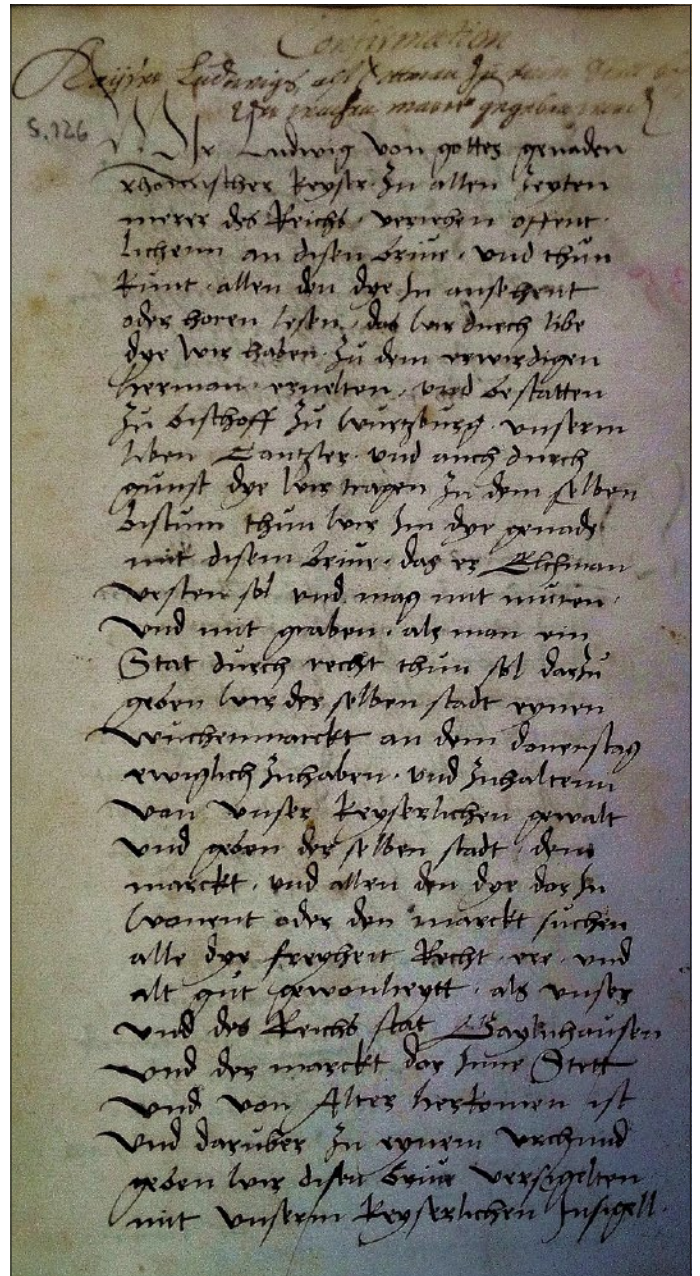 Confirmation
Keyser Ludwigs
gegeben
S. 126
Wir Ludwig von gottes genaden
rhömischer keyser zu allen zeyten
merer des Reichs veriehen offent
lichenn an disen brive und thun
kunt allen den dye In ansehent
oder horen lesen das wir durch libe
dye wir haben zu dem erwirdigen
herman erwelten und bestatten
zu bischoff zu wurtzburg unserm
liben Cantzler und auch durch
gunst dye wir tragen zu dem selben
bistum thun wir Im dye genade
mit disem brive das er Eltman
vesten sol und mag mit muren
und mit graben als man ein
Stat durch recht thun sol darzu
geben wir der selben stadt eynen
wuchenmarckt an dem donerstag
ewiglich zuhaben und zuhaltenn
von unser keyserlichen gewalt
und geben der selben stadt dem
marckt und allen den dye dor In
wonent oder den marckt suchen
alle dye freyheit Recht ere und
alt gut gewonheytt als unser
und des Reichs stat Gaylnhausen
und der marckt dor Inne Stett
und von Alter herkomen ist
und daruber zu eynem urchund
geben wir disen brive versigelten
mit unserm keyserlichen Insigell.